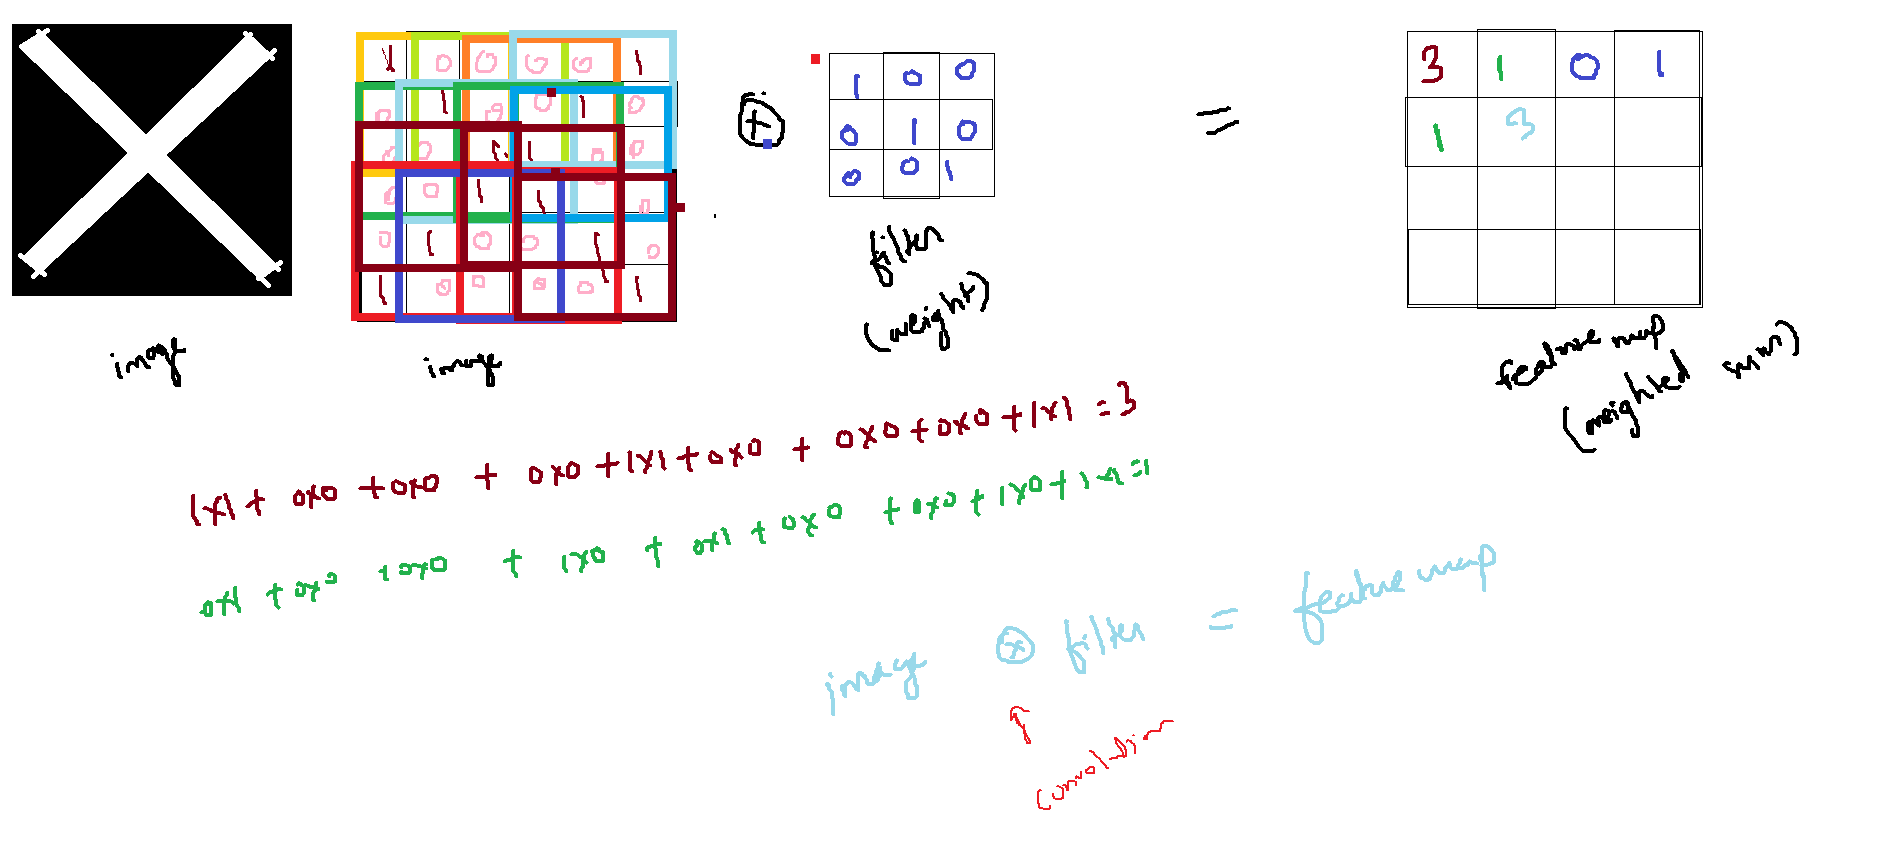 1 0 0 0 0 1
0 1 0 0 1 0
0 0 1 1 0 0
0 0 1 1 0 0
0 1 0 0 1 0
1 0 0 0 0 1
+
1 0 0
0 1 0
0 0 1
=
3 1 0 1
1 3
image
image
filter
(weight)
feature map
(weighted sum)
1x1 + 0x0 + 0x0 + 0x0 + 1x1 + 0x0 + 0x0 + 0x0 + 1x1 = 3
0x1 + 0x0 + 0x0 + 1x0 + 0x1 + 0x0 + 0x0 + 1x0 + 1x1 = 1
image * filter = feature map
convolution